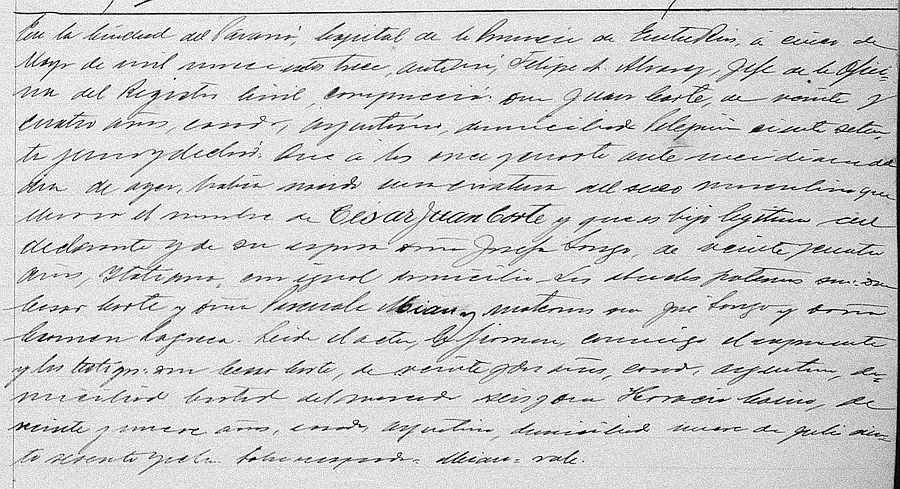 En la Ciudad del Paraná, Capital de la Provincia de Entre Rios, á cinco de
Mayo de mil novecientos trece, ante mi, Felipe A. Alvarez, Jefe de la Ofici-
na del Registro Civil, compareció don Juan Corte, de veinte y
cuatro años, casado, argentino, domiciliado Pelegrini ciento seten-
ta y declaró: Que á las once y ante meridiano del
dia de ayer, habia nacido una criatura del sexo masculino que
llevará el nombre de César Juan Corte y que es hijo legitimo del
declarante y de su esposa doña Josefa Longo, de veinte y cuatro
años, italiana, con igual domicilio. Los abuelos paternos son: don
Cesar Corte y doña Pascuala y maternos don José Longo y doña
Carmen. Leida el acta, la firman, conmigo el exponente
y los testigos: don Cesar Corte, de veinte y dos años, casado, argentino, do-
miciliado costado del mercado seis y don Horacio, de
veinte y nueve años, casado, argentino, domiciliado nueve de Julio cien-
to sesenta y. Sobre raspado = = vale.